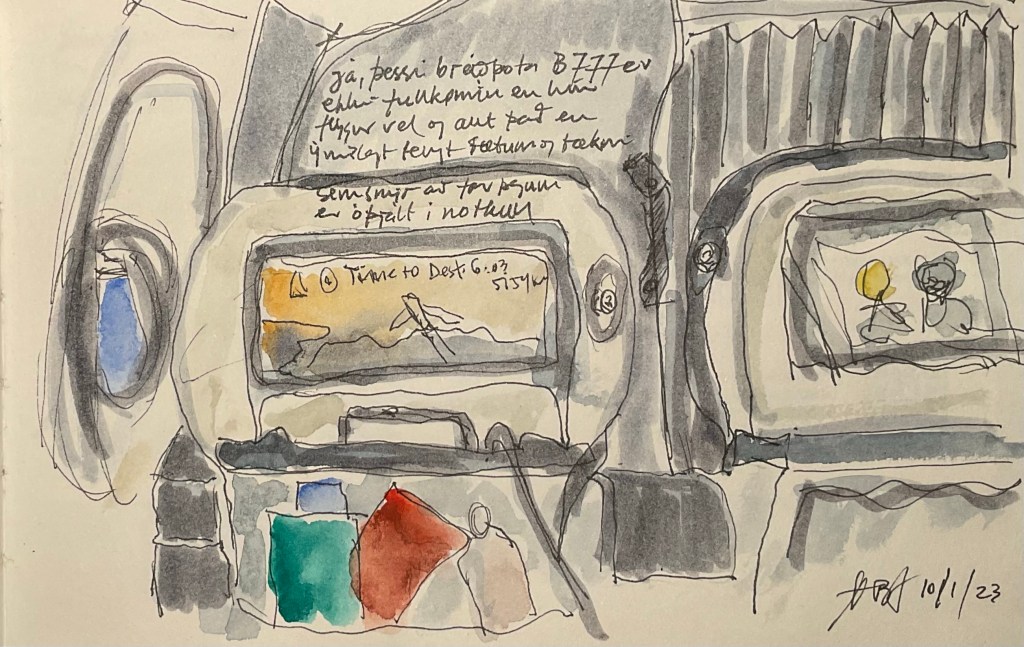 já, þessi breiðþota B777 er
ekki fullkomin en hún
flýgur vel og allt það en
ýmislegt tengt sætum og tækni
sem snýr að farþegum
er ópjált í notkun
Time to Dest: 6:03
5154 km
10/1/23